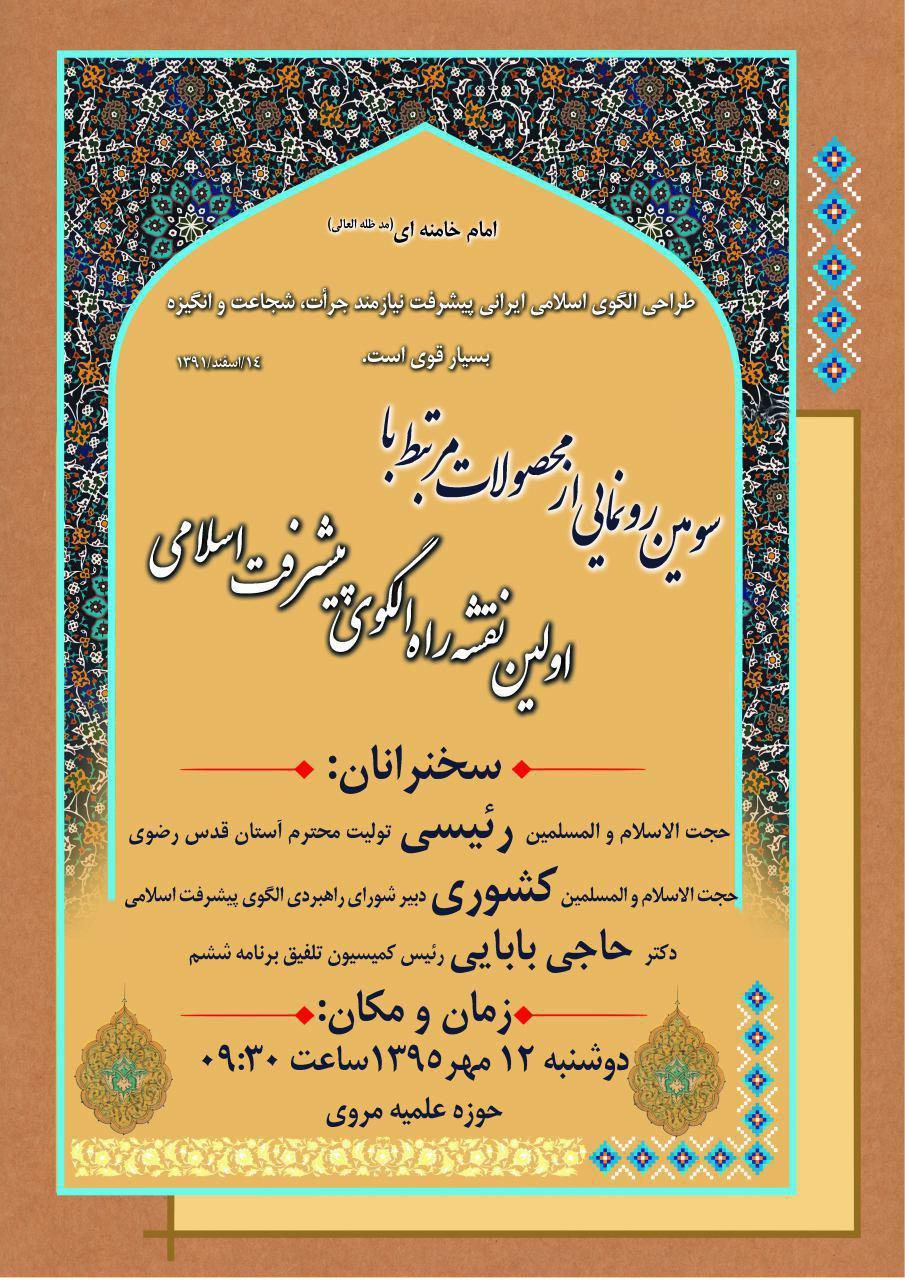 امام خامنه ای(مد ظله العالی)
طراحی الگوی اسلامی ایرانی پیشرفت نیازمند جرأت، شجاعت و انگیزه
بسیار قوی است.
۱۴/اسفند/۱۳۹۱
سومین رونمایی از محصولات مرتبط با
اولین نقشه راه الگوی پیشرفت اسلامی
سخنرانان:
حجت الاسلام و المسلمین رئیسی تولیت محترم آستان قدس رضوی
حجت الاسلام و المسلمین کشوری دبیر شورای راهبردی الگوی پیشرفت اسلامی
دکتر حاجی بابایی رئیس کمیسیون تلفیق برنامه ششم
زمان و مکان:
دوشنبه ۱۲ مهر۱۳۹۵ساعت ۰۹:۳۰
حوزه علمیه مروی